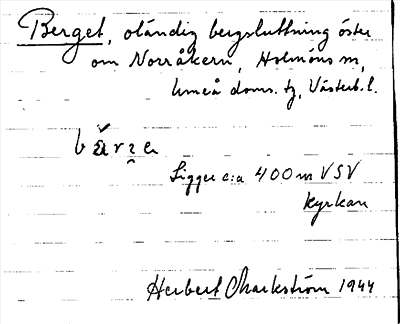 Berget, oländig bergsluttning öster
om Norråkern, Holmöns sn,
Umeå doms. tg, Västerb. l.
bärze
Ligger c:a 400 m VSV
kyrkan
Herbert Markström 1944